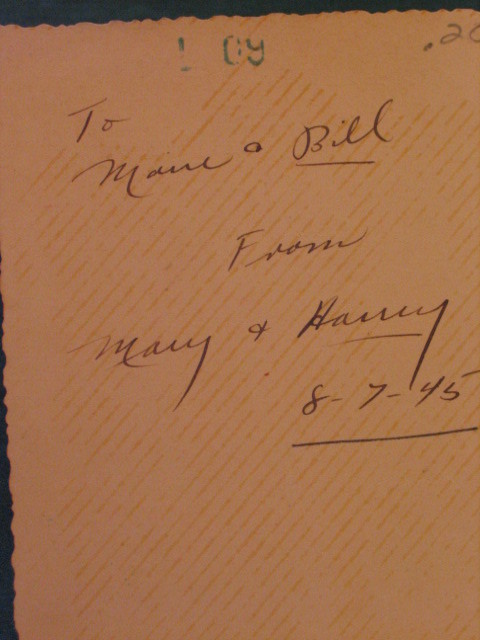 09
.20
To
Marie & Bill
From
Mary & Harry
8-7-45